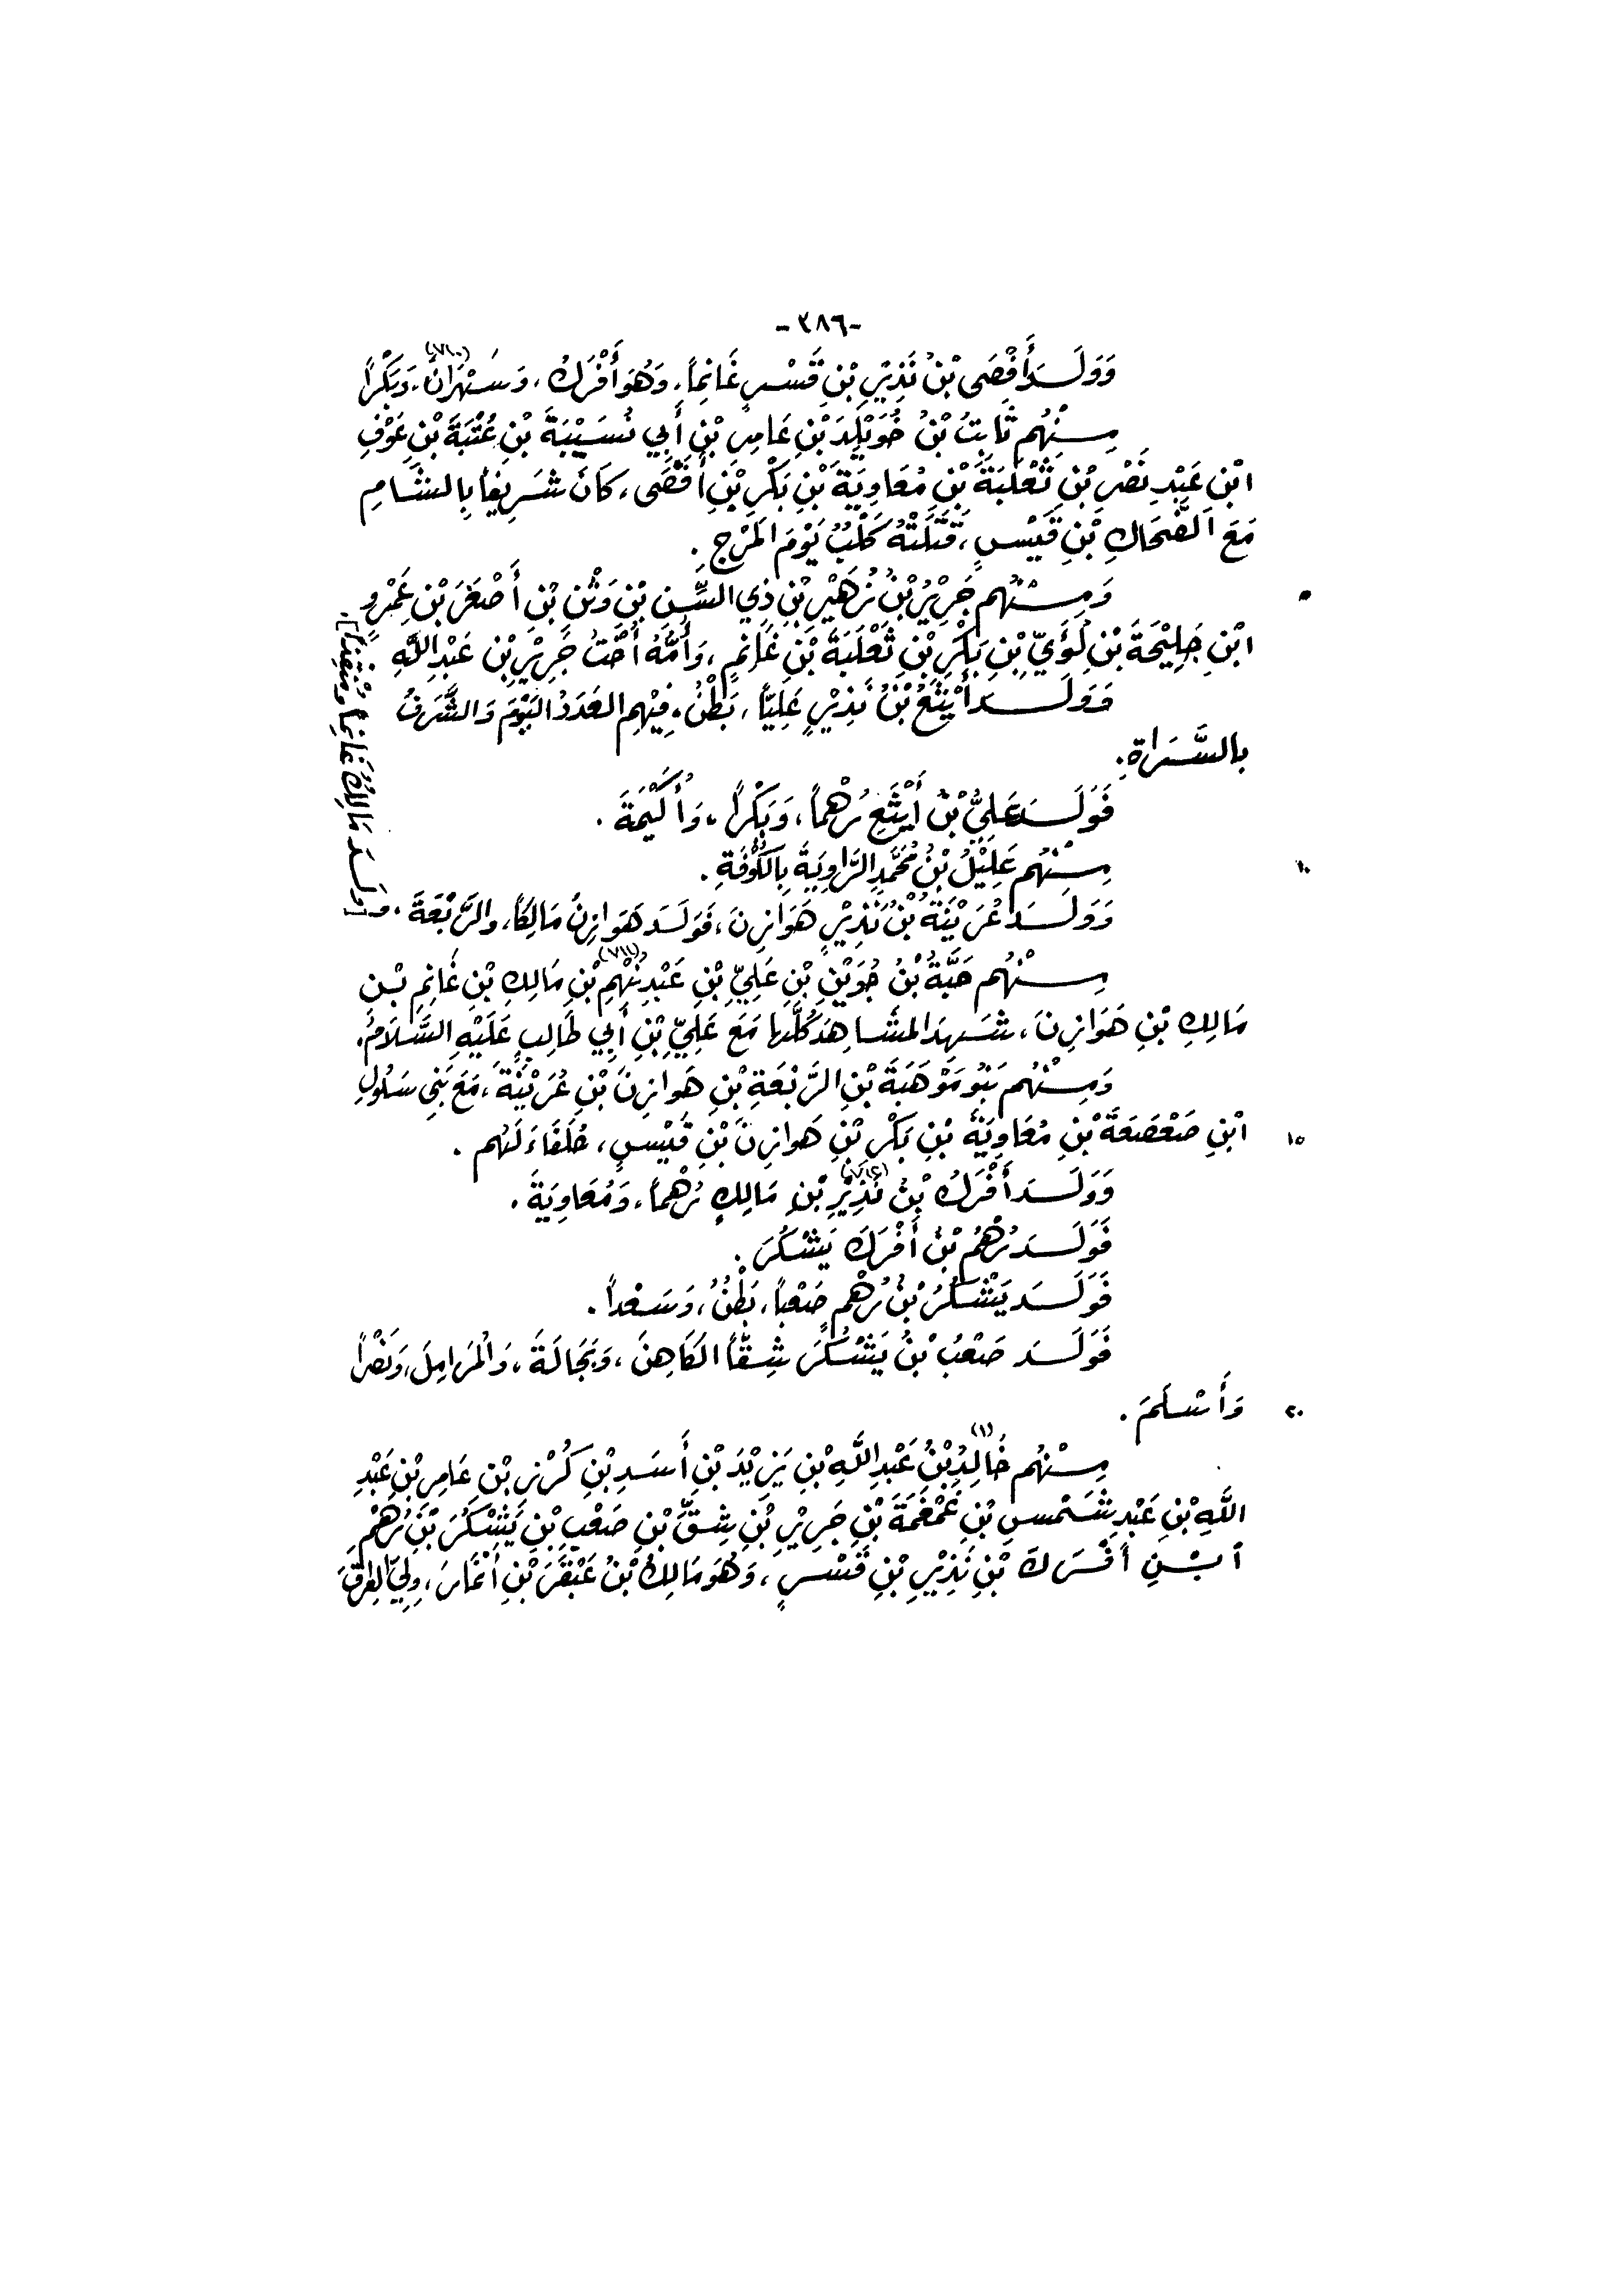 -٣٨٦-
وَوَلَدَ أَفْصَى بْنُ نَذِيرِ بْنِ قَسْرٍ غَانِماً، وَهُوَ أَفْرَكُ، وَسَهْرَانَ، وَبَكْراً (٧١٠)
مِنْهُم ثَابِتُ بْنُ خُوَيْلِدَ بْنِ عَامِرِ بْنِ أَبِي نُسَيْبَةَ بْنِ عُتْبَةَ بْنِ عَوْفِ
ابْنِ عَبْدِ نَصْرِ بْنِ ثَعْلَبَةَ بْنِ مُعَاوِيَةَ بْنِ بَكْرِ بْنِ أَفْصَى، كَانَ شَرِيفاً بِالشَّامِ
مَعَ الضَّحَّاكِ بْنِ قَيْسٍ، قَتَلَتْهُ كَلْبُ يَوْمَ المَرْجِ.
٥ وَمِنْهُم جَرِيْرُ بْنُ زُهَيْرِ بْنِ ذِي السِّنِ بْنِ وَثْنِ بْنِ أَصْغَرَ بْنِ عَمْرِو
ابْنِ جَلِيْحَةَ بْنِ لُؤَيِّ بْنِ بَكْرِ بْنِ ثَعْلَبَةَ بْنِ غَانِمٍ، وَأُمُّهُ أُخْتُ جَرِيْرِ بْنِ عَبْدِ اللَّهِ
وَوَلَدَ أَيْثَعُ بْنُ نَذِيْرٍ عَلِيّاً، بَطْنٌ، فِيْهِم العَدَدُ اليَوْمَ وَالشَّرَفُ
بِالسَّرَاةِ.
فَوَلَدَ عَلِيُّ بْنُ أَيْثَعِ رُهْماً، وَبَكْراً، وَأُكَيْمَةَ.
١٠ مِنْهُم عَلِيْلُ بْنُ مُحَمَّدِ الرَّاوِيَةَ بِالكُوْفَةِ.
وَوَلَدَ عُرَيْنَةُ بْنُ نَذِيْرٍ هَوَازِنَ، فَوَلَدَ هَوَازِنُ مَالِكاً، والرَّبْعَةَ، و
[وَلَدَ مَالِكُ غَانِماً ومُنْقِذاً].
مِنْهُم حَبَّةُ بْنُ جُوَيْنِ بْنِ عَلِيِّ بْنِ عَبْدِ نُهْمِ (٧١١) بْنِ مَالِكِ بْنِ غَانِمِ بْنِ
مَالِكِ بْنِ هَوَازِنَ، شَهِدَ المَشَاهِدَ كُلَّهَا مَعَ عَلِيِّ بْنِ أَبِي طَالِبٍ عَلَيْهِ السَّلَامُ.
وَمِنْهُم بَنُو مَوْهَبَةَ بْنِ الرَّبْعَةِ بْنِ هَوَازِنَ بْنِ عُرَيْنَةَ، مَعَ بَنِي سَلُولِ
١٥ ابْنِ صَعْصَعَةَ بْنِ مُعَاوِيَةَ بْنِ بَكْرِ بْنِ هَوَازِنَ بْنِ قَيْسٍ، حُلَفَاءَ لَهُم.
وَوَلَدَ أَفْرَكُ بْنُ نَذِيْرِ (٧١٢) بْنِ مَالِكٍ رُهْماً، وَمُعَاوِيَةَ.
فَوَلَدَ رُهْمُ بْنُ أَفْرَكَ يَشْكُرَ.
فَوَلَدَ يَشْكُرُ بْنُ رُهْمٍ صَعْباً، بَطْنٌ، وَسَعْداً.
فَوَلَدَ صَعْبُ بْنُ يَشْكُرَ شِقّاً الكَاهِنَ، وَبَجَالَةَ، وَالمَرَامِلَ، وَنَصْراً
٢٠ وَأَسْلَمَ.
مِنْهُم خَالِدُ (١) بْنُ عَبْدِ اللَّهِ بْنِ يَزِيْدَ بْنِ أَسَدِ بْنِ كُرْزِ بْنِ عَامِرِ بْنِ عَبْدِ
اللَّهِ بْنِ عَبْدِ شَمْسِ بْنِ غَمْغَمَةَ بْنِ جَرِيْرِ بْنِ شِقِّ بْنِ صَعْبِ بْنِ يَشْكُرَ بْنِ رُهْمِ
ابْنِ أَفْرَكَ بْنِ نَذِيْرِ بْنِ قَسْرٍ، وَهُوَ مَالِكُ بْنُ عَبْقَرَ بْنِ أَنْمَارَ، وَلِيَ العِرَاقَ